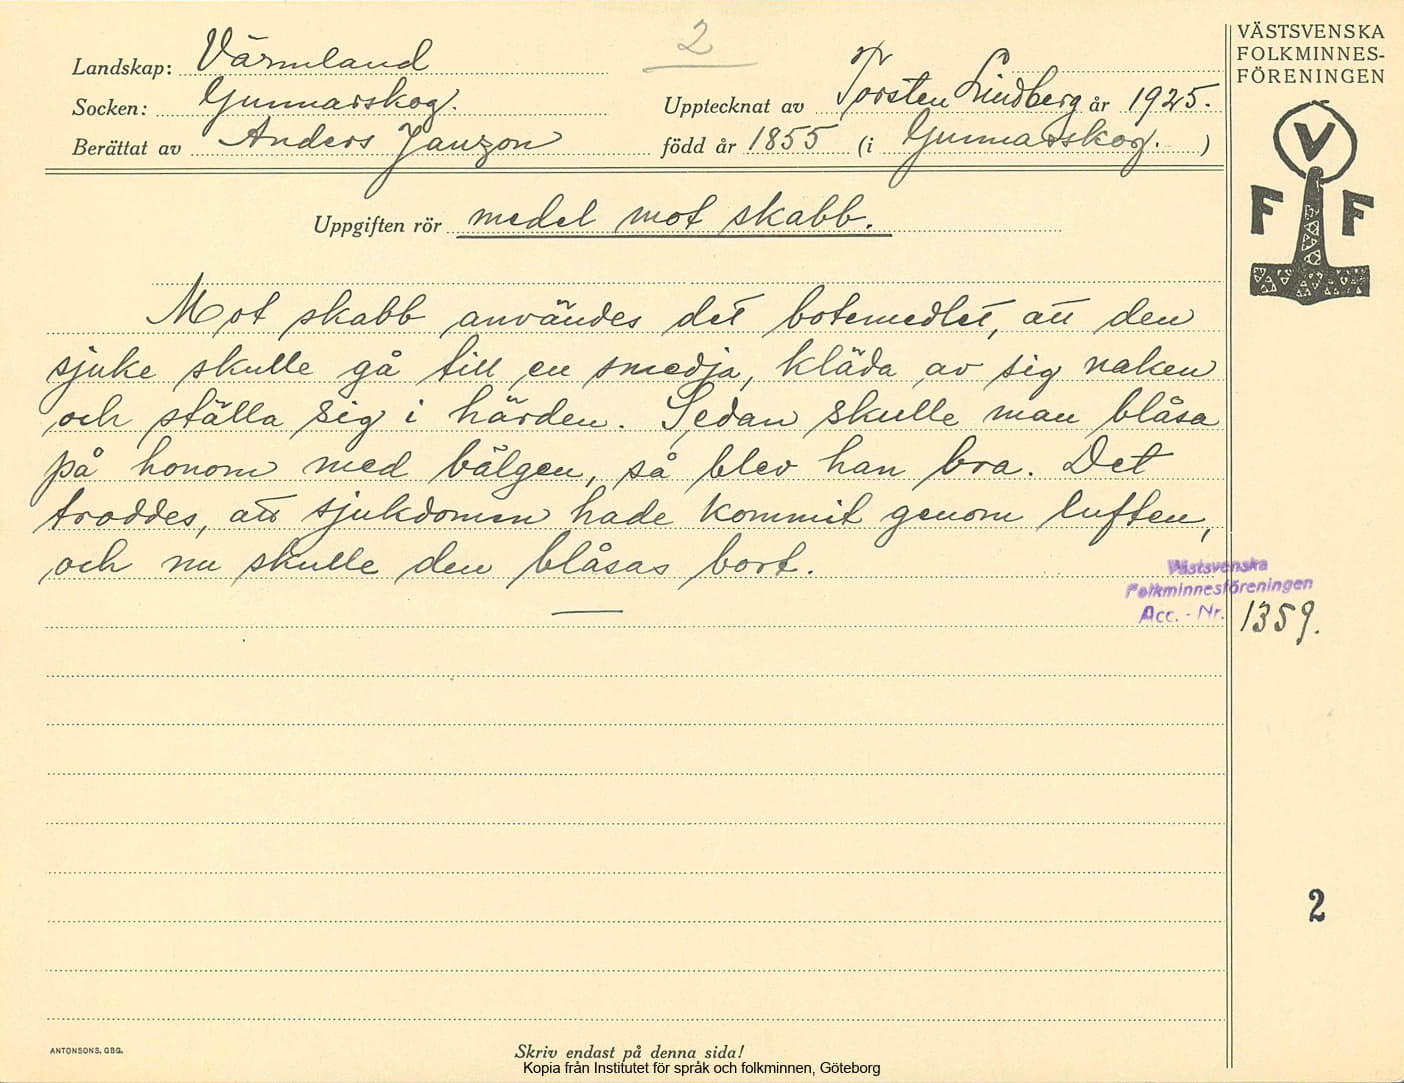 2
Landskap: Värmland
Socken: Gunnarskog.
Upptecknat av Torsten Lindberg år 1925.
Berättat av Anders Janzon
född år 1855 (i Gunnarskog. )
VÄSTSVENSKA
FOLKMINNES-
FÖRENINGEN
V
F F
Uppgiften rör medel mot skabb.
Mot skabb användes det botemedlet, att den
sjuke skulle gå till en smedja, kläda av sig naken
och ställa sig i härden. Sedan skulle man blåsa
på honom med bälgen, så blev han bra. Det
troddes, att sjukdomen hade kommit genom luften,
och nu skulle den blåsas bort.
Västsvenska
Folkminnesföreningen
Acc. - Nr. 1359.
2
ANTONSONS, GBG.
Skriv endast på denna sida!
Kopia från Institutet för språk och folkminnen, Göteborg